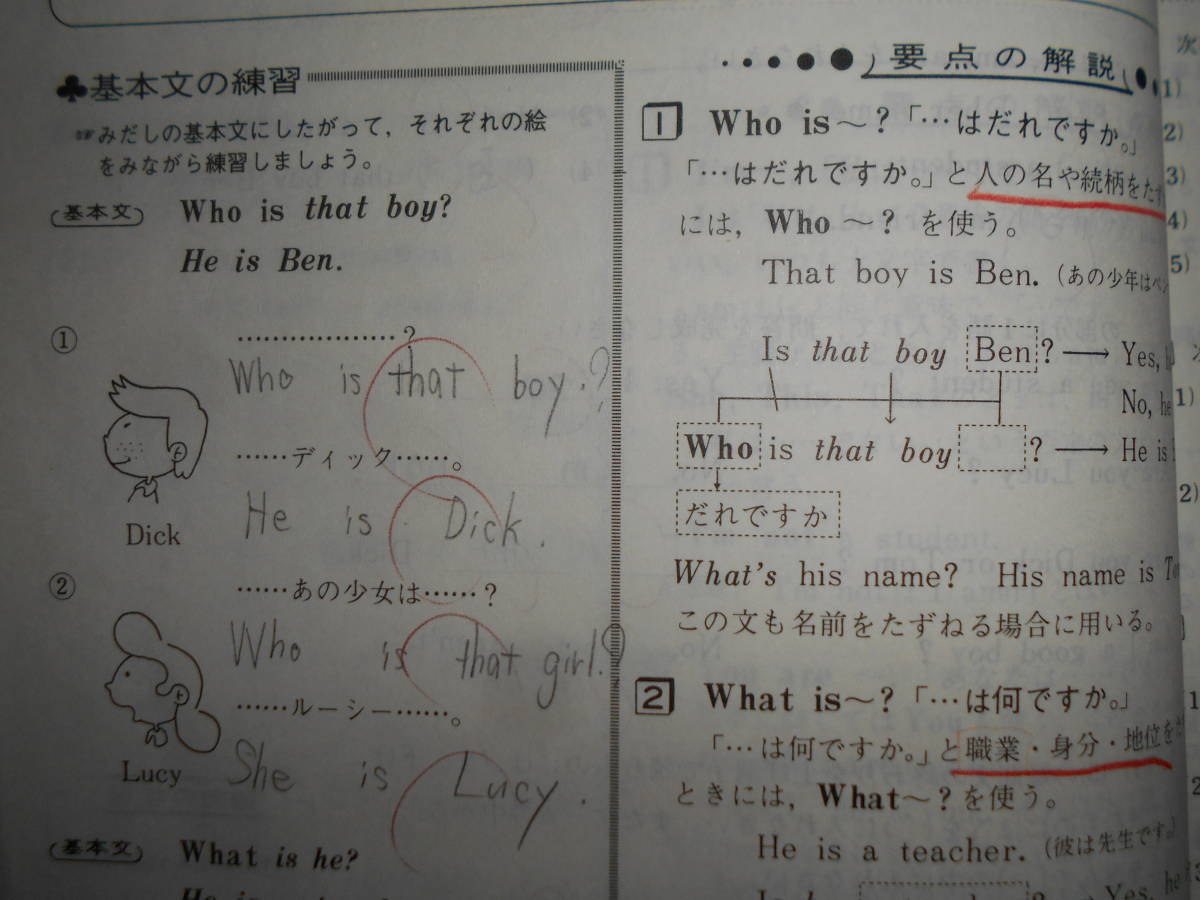 ♣基本文の練習
☞みだしの基本文にしたがって，それぞれの絵
をみながら練習しましょう。
基本文 Who is that boy?
He is Ben.
① ………………?
Who is that boy?
……ディック……。
He is Dick.
Dick
② ……あの少女は……?
Who is that girl?
……ルーシー……。
She is Lucy.
Lucy
基本文 What is he?
要点の解説
1 Who is～?「…はだれですか。」
「…はだれですか。」と人の名や続柄をたず
には，Who ～? を使う。
That boy is Ben. (あの少年はベン
Is that boy Ben? → Yes,
No, he
Who is that boy ? → He is
だれですか
What's his name? His name is
この文も名前をたずねる場合に用いる。
2 What is～?「…は何ですか。」
「…は何ですか。」と職業・身分・地位を
ときには，What～? を使う。
He is a teacher. (彼は先生です。)
Yes, he
次
1)
2)
3)
4)
5)
1)
2)